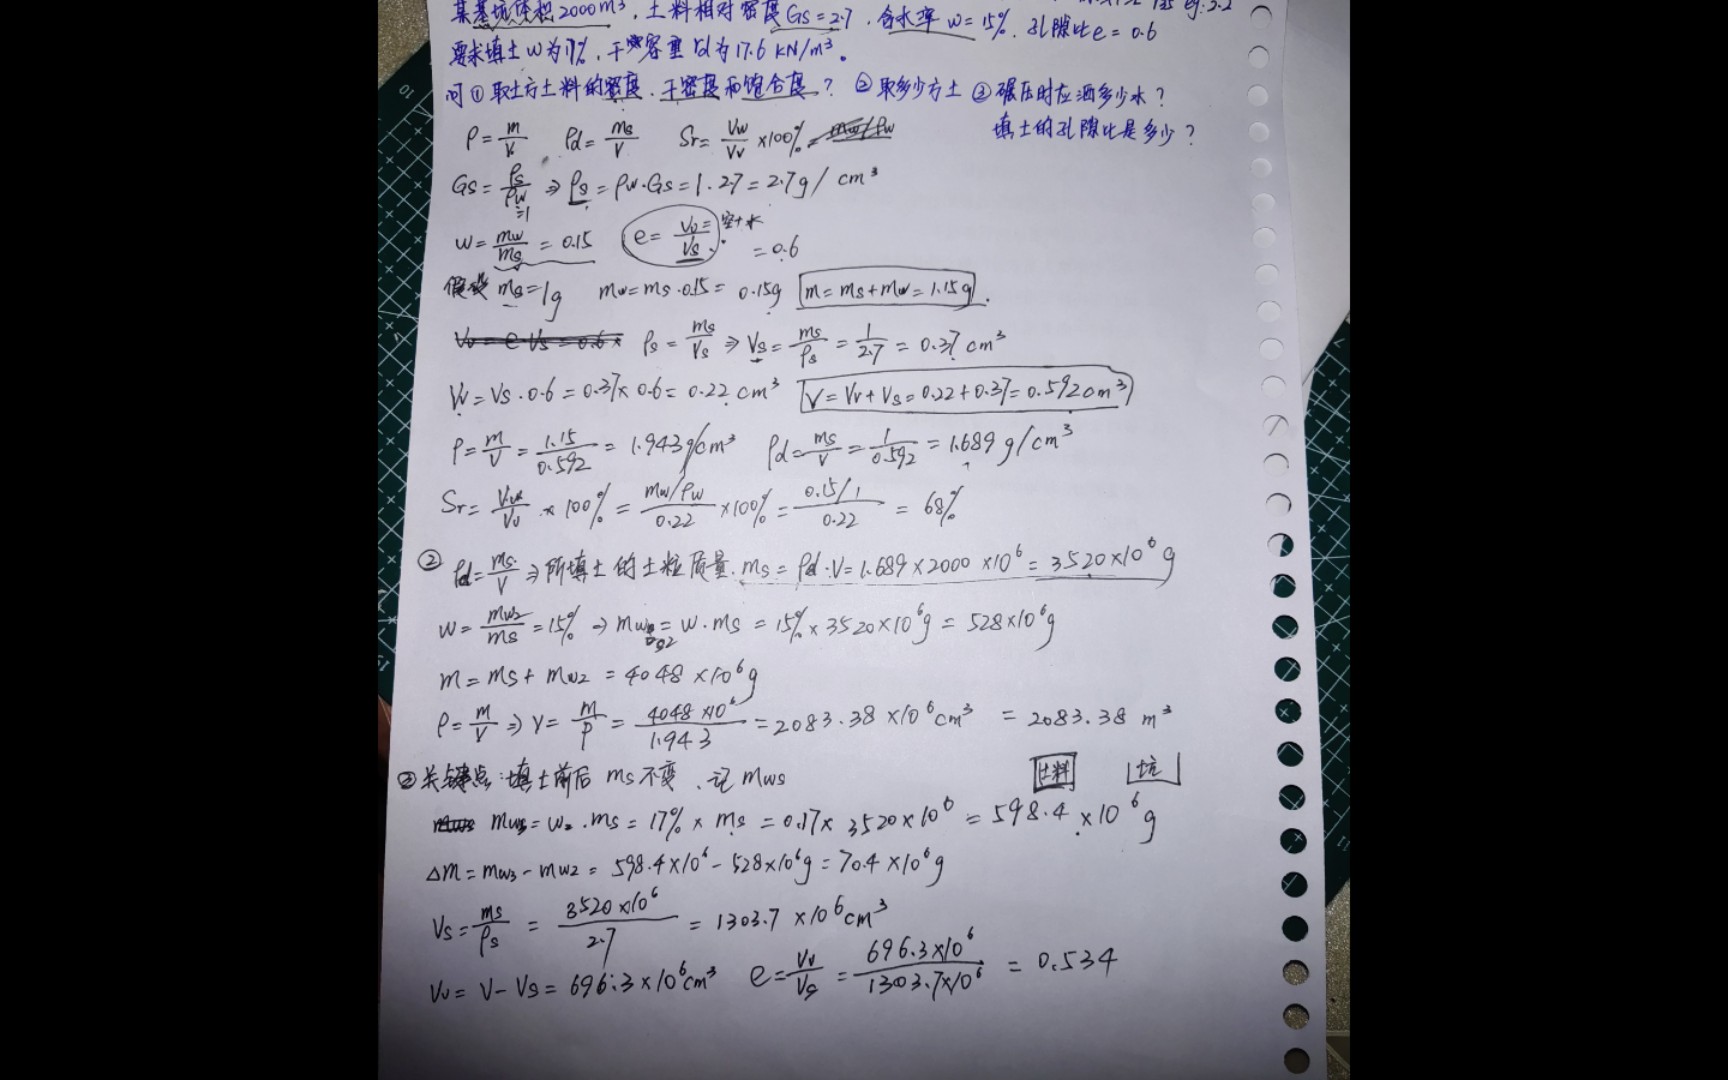 某基坑体积2000m³,土料相对密度Gs=2.7,含水率w=15%,孔隙比e=0.6
要求填土w为17%,干容重rd为17.6 kN/m³。
问①取土方土料的密度、干密度和饱合度?②取多少方土③碾压时应洒多少水?
填土的孔隙比是多少?
ρ=m/V ρd=ms/V Sr=Vw/Vv×100%=
Gs=ρs/ρw=1 ⇒ ρs=ρw·Gs=1·2.7=2.7g/cm³
w=mw/ms=0.15 e=Vv/Vs=0.6 空+水
假设ms=1g mw=ms·0.15=0.15g m=ms+mw=1.15g.
ρs=ms/Vs⇒Vs=ms/ρs=1/2.7=0.37cm³
Vv=Vs·0.6=0.37×0.6=0.22cm³ V=Vv+Vs=0.22+0.37=0.592cm³
ρ=m/V=1.15/0.592=1.943g/cm³ ρd=ms/V=1/0.592=1.689g/cm³
Sr=Vw/Vv×100%=mw/ρw/0.22×100%=0.15/1/0.22=68%
②ρd=ms/V⇒所填土的土粒质量.ms=ρd·V=1.689×2000×10⁶=3520×10⁶g
w=mw2/ms=15%→mw2=w·ms=15%×3520×10⁶g=528×10⁶g
m=ms+mw2=4048×10⁶g
ρ=m/V⇒V=m/ρ=4048×10⁶/1.943=2083.38×10⁶cm³=2083.38m³
③关键点:填土前后ms不变、记mws 土料 坑
mw3=w2·ms=17%×ms=0.17×3520×10⁶=598.4×10⁶g
△m=mw3-mw2=598.4×10⁶-528×10⁶g=70.4×10⁶g
Vs=ms/ρs=3520×10⁶/2.7=1303.7×10⁶cm³
Vv=V-Vs=696.3×10⁶cm³ e=Vv/Vs=696.3×10⁶/1303.7×10⁶=0.534